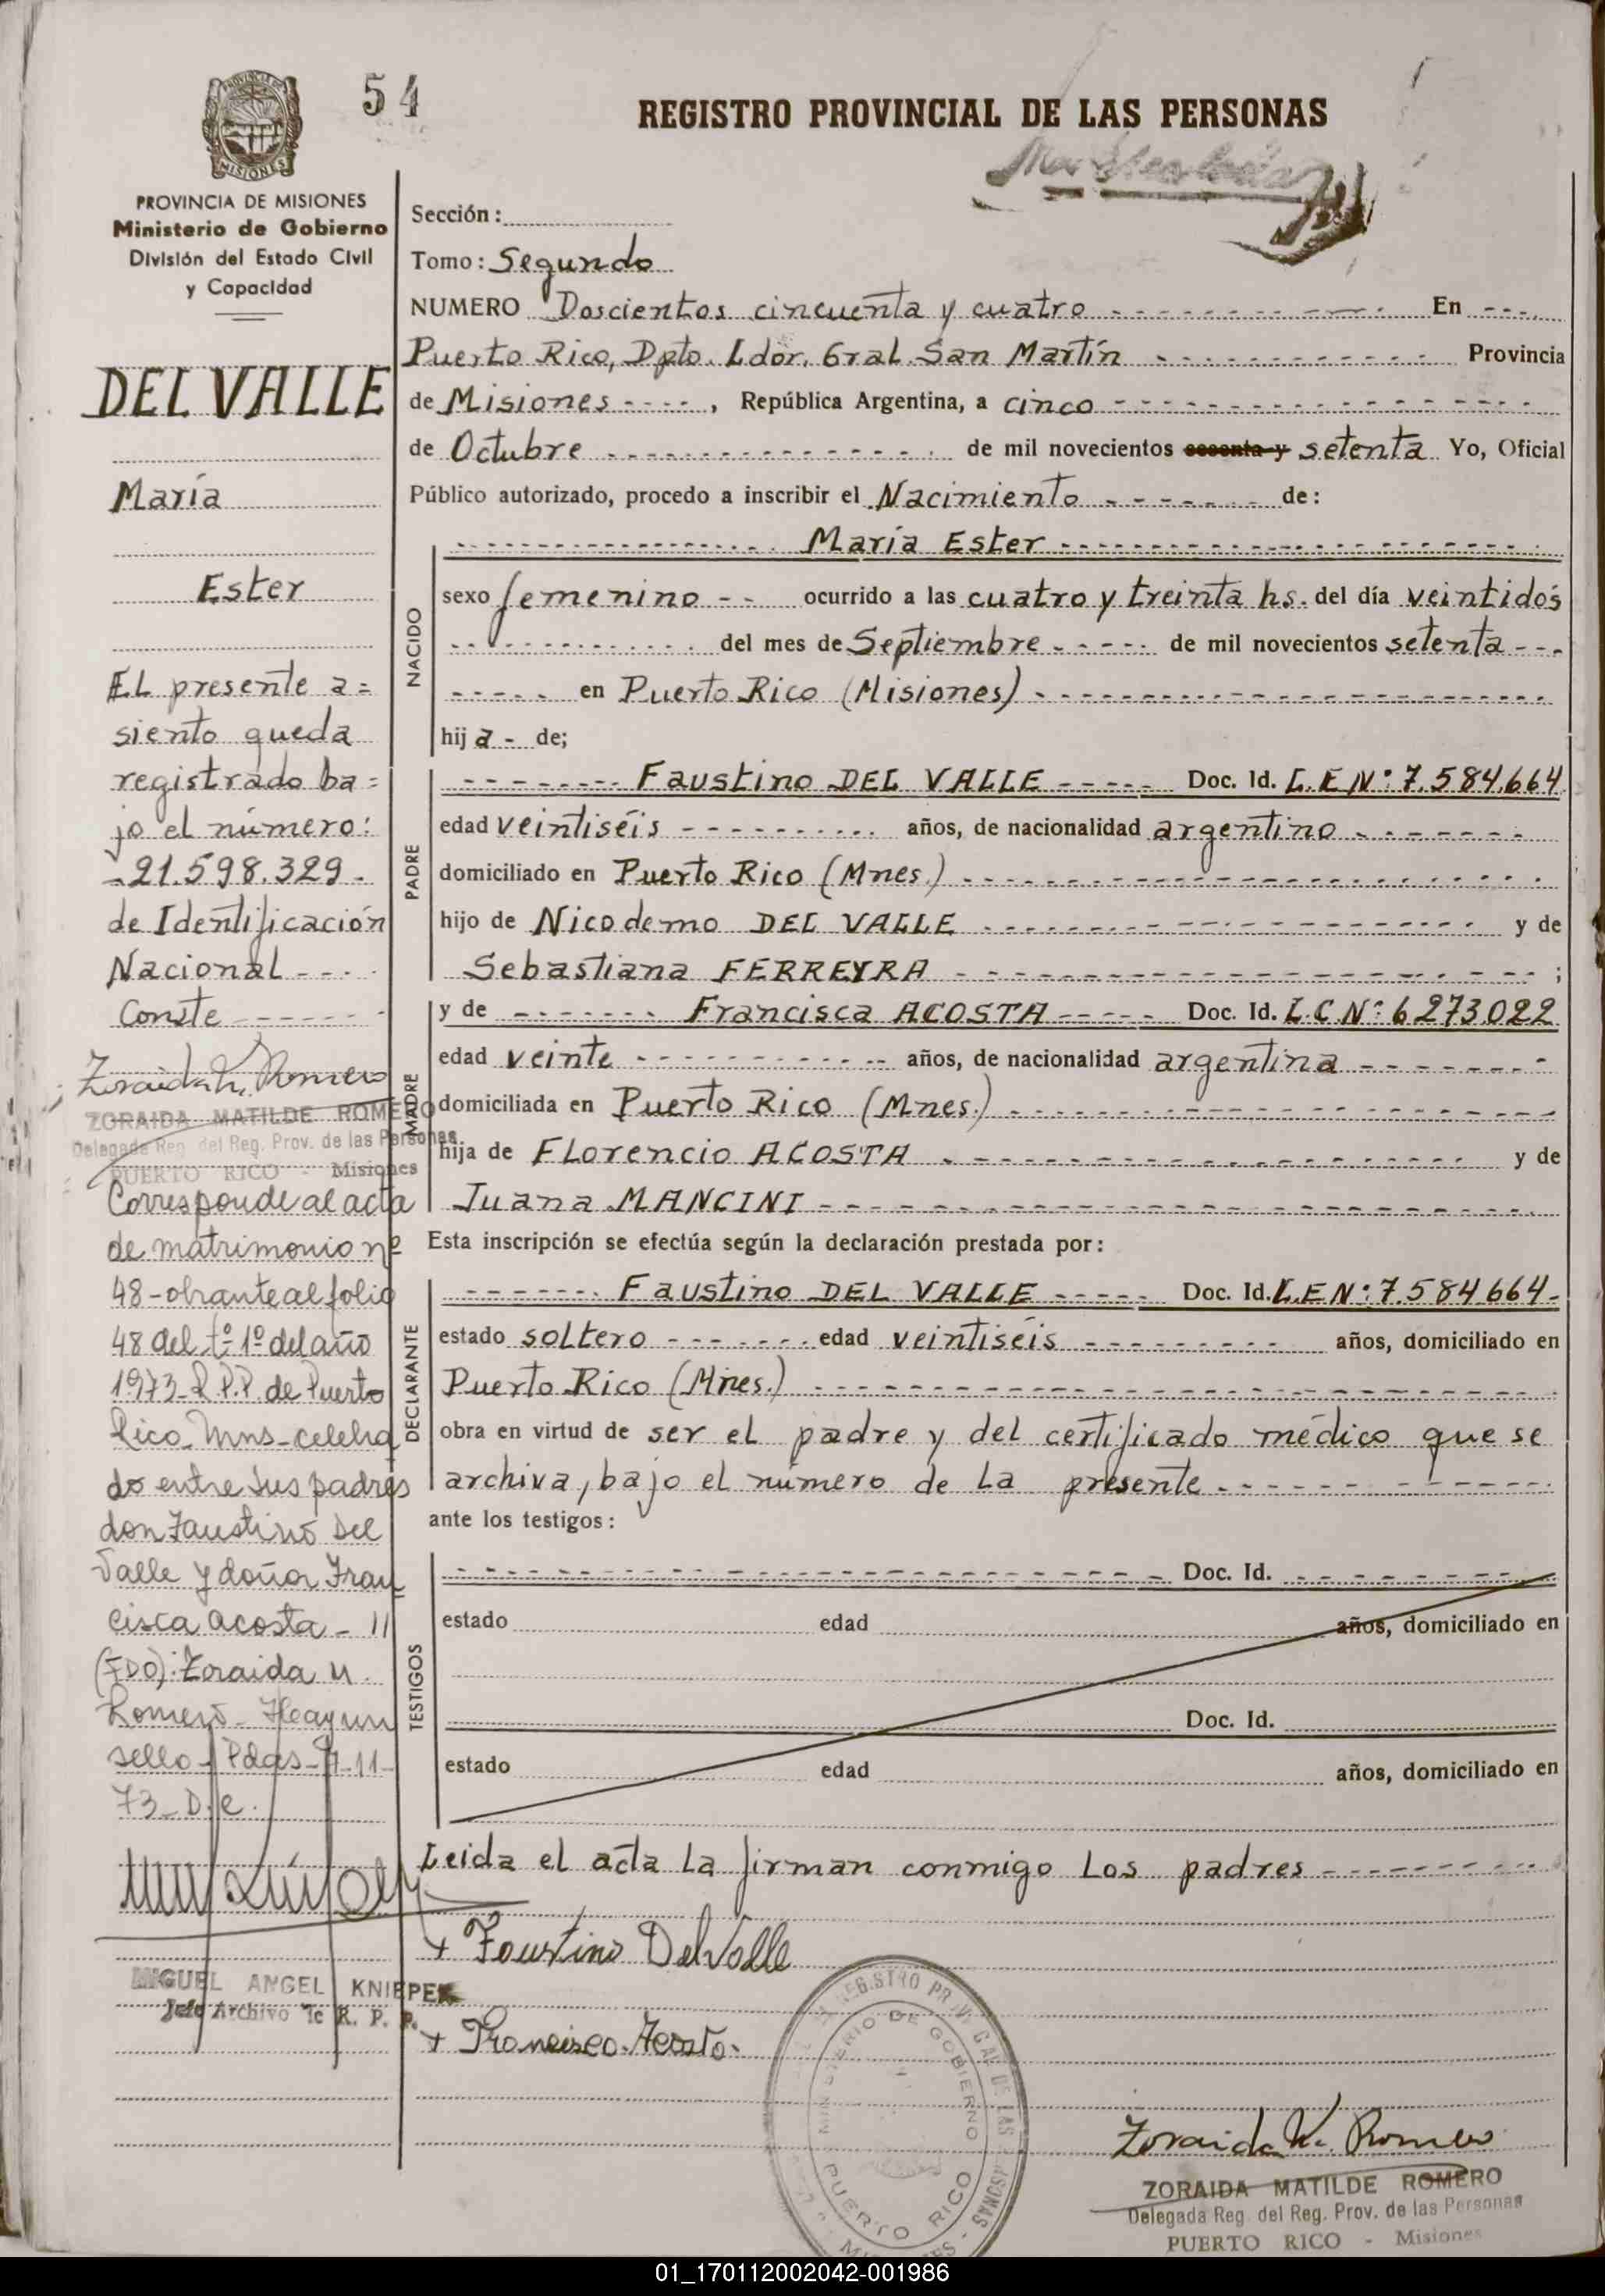 54
REGISTRO PROVINCIAL DE LAS PERSONAS
MISIONES
PROVINCIA DE MISIONES
Ministerio de Gobierno
División del Estado Civil
y Capacidad
DEL VALLE
María
Ester
El presente a=
siento queda
registrado ba=
jo el número:
-21.598.329.-
de Identificación
Nacional - - - -
Conste - - - - - -
Zoraida M. Romero
ZORAIDA MATILDE ROMERO
Delegada Reg. del Reg. Prov. de las Personas
PUERTO RICO - Misiones
Corresponde al acta
de matrimonio nº
48-obrante al folio
48 del tº 1º del año
1973-R.P.P. de Puerto
Rico-Mns-celebra
do entre sus padres
don Faustino Del
Valle y doña Fran
cisca Acosta-11
(FDO): Zoraida M.
Romero-Hay un
sello-Pdas-9-11-
73-D.C.
MIGUEL ANGEL KNIEPER
Jefe Archivo R. P. P.
Sección:
Tomo: Segundo
NUMERO Doscientos cincuenta y cuatro - - - - En - - -
Puerto Rico, Dpto. Ldor. Gral. San Martín - - - - Provincia
de Misiones - - - -, República Argentina, a cinco - - - -
de Octubre - - - - de mil novecientos sesenta y setenta Yo, Oficial
Público autorizado, procedo a inscribir el Nacimiento - - - - de:
- - - - María Ester - - - -
NACIDO
sexo femenino - - ocurrido a las cuatro y treinta hs. del día veintidós
- - - - del mes de Septiembre - - - - de mil novecientos setenta - - -
- - - - en Puerto Rico (Misiones) - - - -
hij a - de;
PADRE
- - - - Faustino DEL VALLE - - - - Doc. Id. L.E Nº: 7.584.664
edad veintiséis - - - - años, de nacionalidad argentino - - - -
domiciliado en Puerto Rico (Mnes.) - - - -
hijo de Nicodemo DEL VALLE - - - - y de
Sebastiana FERREYRA - - - - ;
MADRE
y de - - - - Francisca ACOSTA - - - - Doc. Id. L.C Nº: 6273.022
edad veinte - - - - años, de nacionalidad argentina - - - -
domiciliada en Puerto Rico (Mnes.) - - - -
hija de Florencio ACOSTA - - - - y de
Juana MANCINI - - - -
Esta inscripción se efectúa según la declaración prestada por:
DECLARANTE
- - - - Faustino DEL VALLE - - - - Doc. Id. L.E Nº: 7.584.664-
estado soltero - - - - edad veintiséis - - - - años, domiciliado en
Puerto Rico (Mnes.) - - - -
obra en virtud de ser el padre y del certificado médico que se
archiva, bajo el número de la presente - - - -
ante los testigos:
TESTIGOS
- - - - Doc. Id. - - - -
estado edad años, domiciliado en
Doc. Id.
estado edad años, domiciliado en
Leida el acta la firman conmigo los padres - - - -
+ Faustino Del Valle
+ Francisca Acosta.
MINISTERIO DE GOBIERNO
PUERTO RICO
Zoraida M. Romero
ZORAIDA MATILDE ROMERO
Delegada Reg. del Reg. Prov. de las Personas
PUERTO RICO - Misiones
01_170112002042-001986